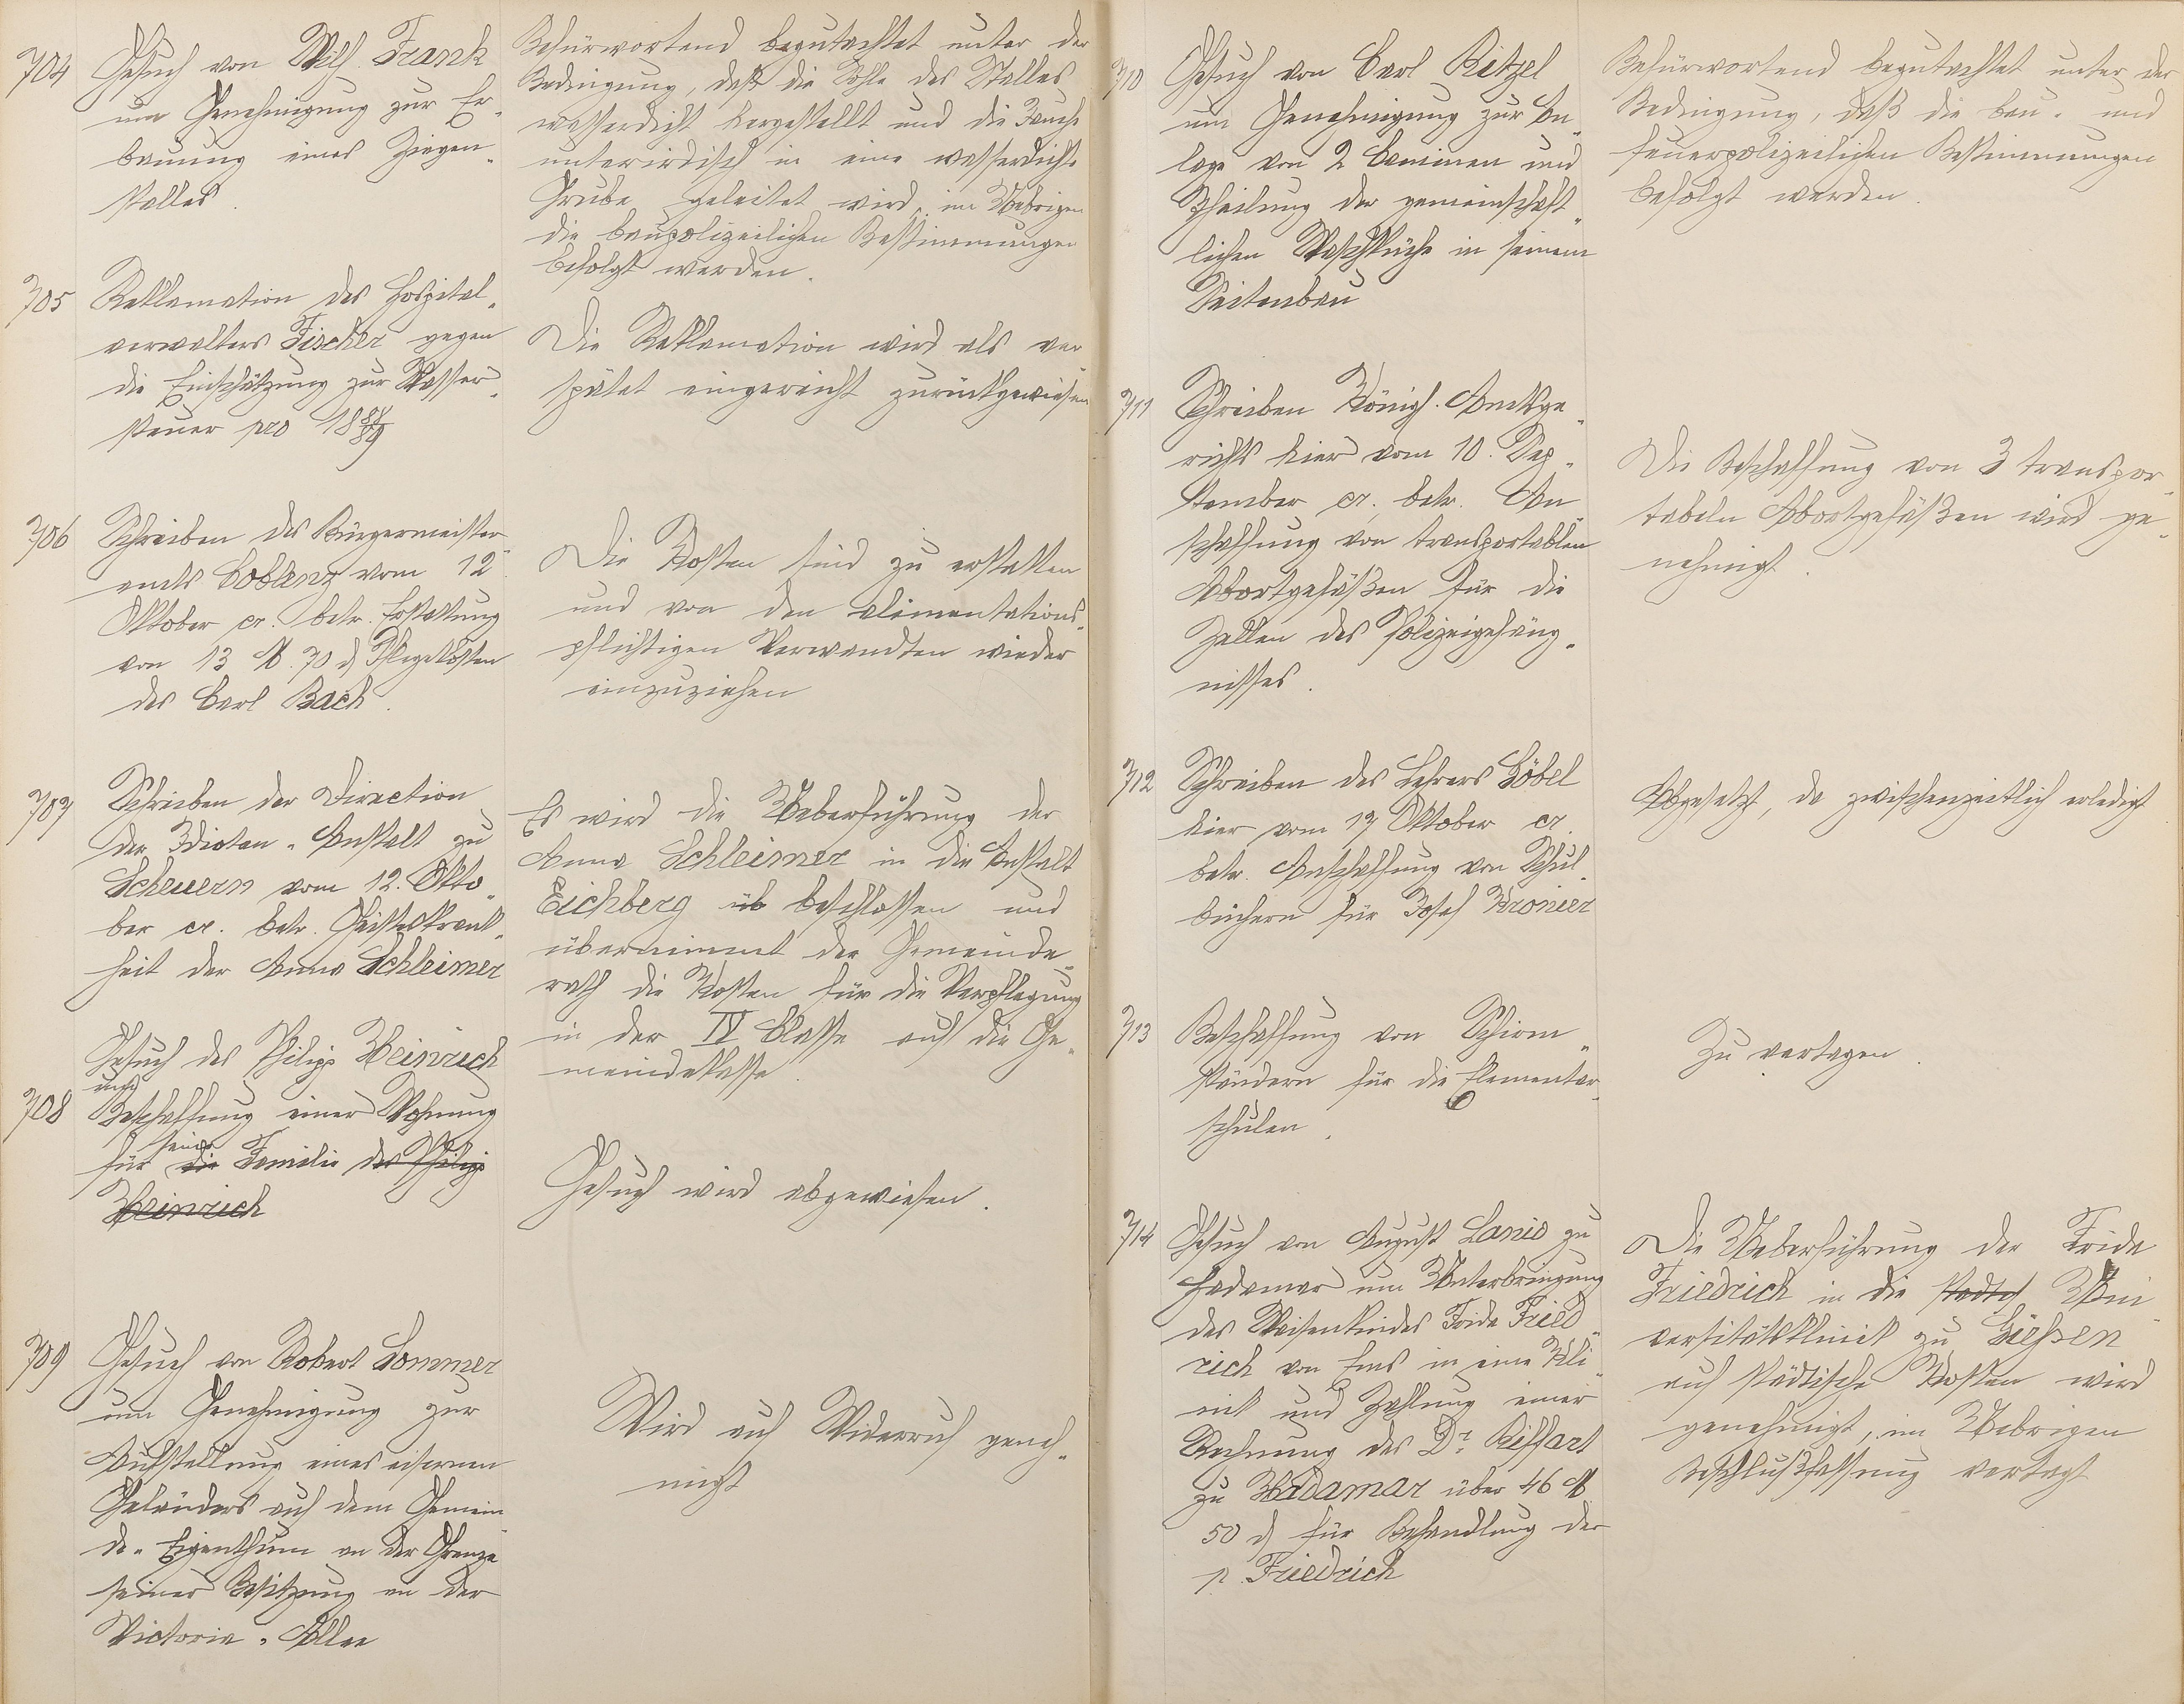 704
Gesuch von Wilh. Frank
um Genehmigung zur Er-
bauung eines Ziegen-
stalles.
Befürwortend begutachtet unter der
Bedingung, daß die Sohle des Stalles
wasserdicht hergestellt und die Jauche
unterirdisch in eine wasserdichte
Grube geleitet wird, im Uebrigen
die baupolizeilichen Bestimmungen
befolgt werden.
705
Reklamation des Hospital-
verwalters Fischer gegen
die Einschätzung zur Wasser-
steuer pro 1888/89
Die Reklamation wird als ver-
spätet eingereicht zurückgewiesen
706
Schreiben des Bürgermeister-
amts Coblenz vom 12.
Oktober cr. betr. Erstattung
von 13 M. 70 d Pflegekosten
des Carl Bach.
Die Kosten sind zu erstatten
und von den alimentations-
pflichtigen Verwandten wieder
einzuziehen
707
Schreiben der Direction
der Idioten-Anstalt zu
Scheuern vom 12. Okto-
ber cr. betr. Geisteskrank-
heit der Anna Schleimer
Es wird die Ueberführung der
Anna Schleimer in die Anstalt
Eichberg üb beschlossen und
übernimmt der Gemeinde-
rath die Kosten für die Verpflegung
in der IV Classe auf die Ge-
meindekasse.
708
Gesuch des Philipp Heinrich
um
Beschaffung einer Wohnung
seine
für die Familie des Philipp
Heinrich
Gesuch wird abgewiesen.
709
Gesuch von Robert Sommer
um Genehmigung zur
Aufstellung eines eisernen
Geländers auf dem Gemein-
de-Eigenthum an der Grenze
seiner Besitzung an der
Victoria-Allee
Wird auf Widerruf geneh-
migt
710
Gesuch von Carl Ritzel
um Genehmigung zur An-
lage von 2 Caminen und
Theilung der gemeinschaft-
lichen Waschküche in seinem
Seitenbau
Befürwortend begutachtet unter der
Bedingung, daß die bau- und
feuerpolizeilichen Bestimmungen
befolgt werden.
711
Schreiben Königl. Amtsge-
richts hier vom 10. Sep-
tember cr., betr. An-
schaffung von transportablen
Abortgefäßen für die
Zellen des Polizeigefäng-
nisses.
Die Beschaffung von 3 transpor-
tabeln Abortgefäßen wird ge-
nehmigt.
712
Schreiben des Lehrers Göbel
hier vom 17 Oktober cr.
betr. Anschaffung von Schul-
büchern für Josef Kronier
Abgesetzt, da zwischenzeitlich erledigt
713
Beschaffung von Schirm-
ständern für die Elementar-
schulen.
Zu vertagen.
714
Gesuch von August Lanio zu
Hadamar um Unterbringung
des Waisenkindes Frida Fried-
rich von Ems in eine Kli-
nik und Zahlung einer
Rechnung des Dr. Riffart
zu Hadamar über 46 M
50 d für Behandlung der
p. Friedrich
Die Ueberführung der Frida
Friedrich in die Uni-
versitätsklinik zu Giessen
auf städtische Kosten wird
genehmigt, im Uebrigen
Beschlußfassung vertagt